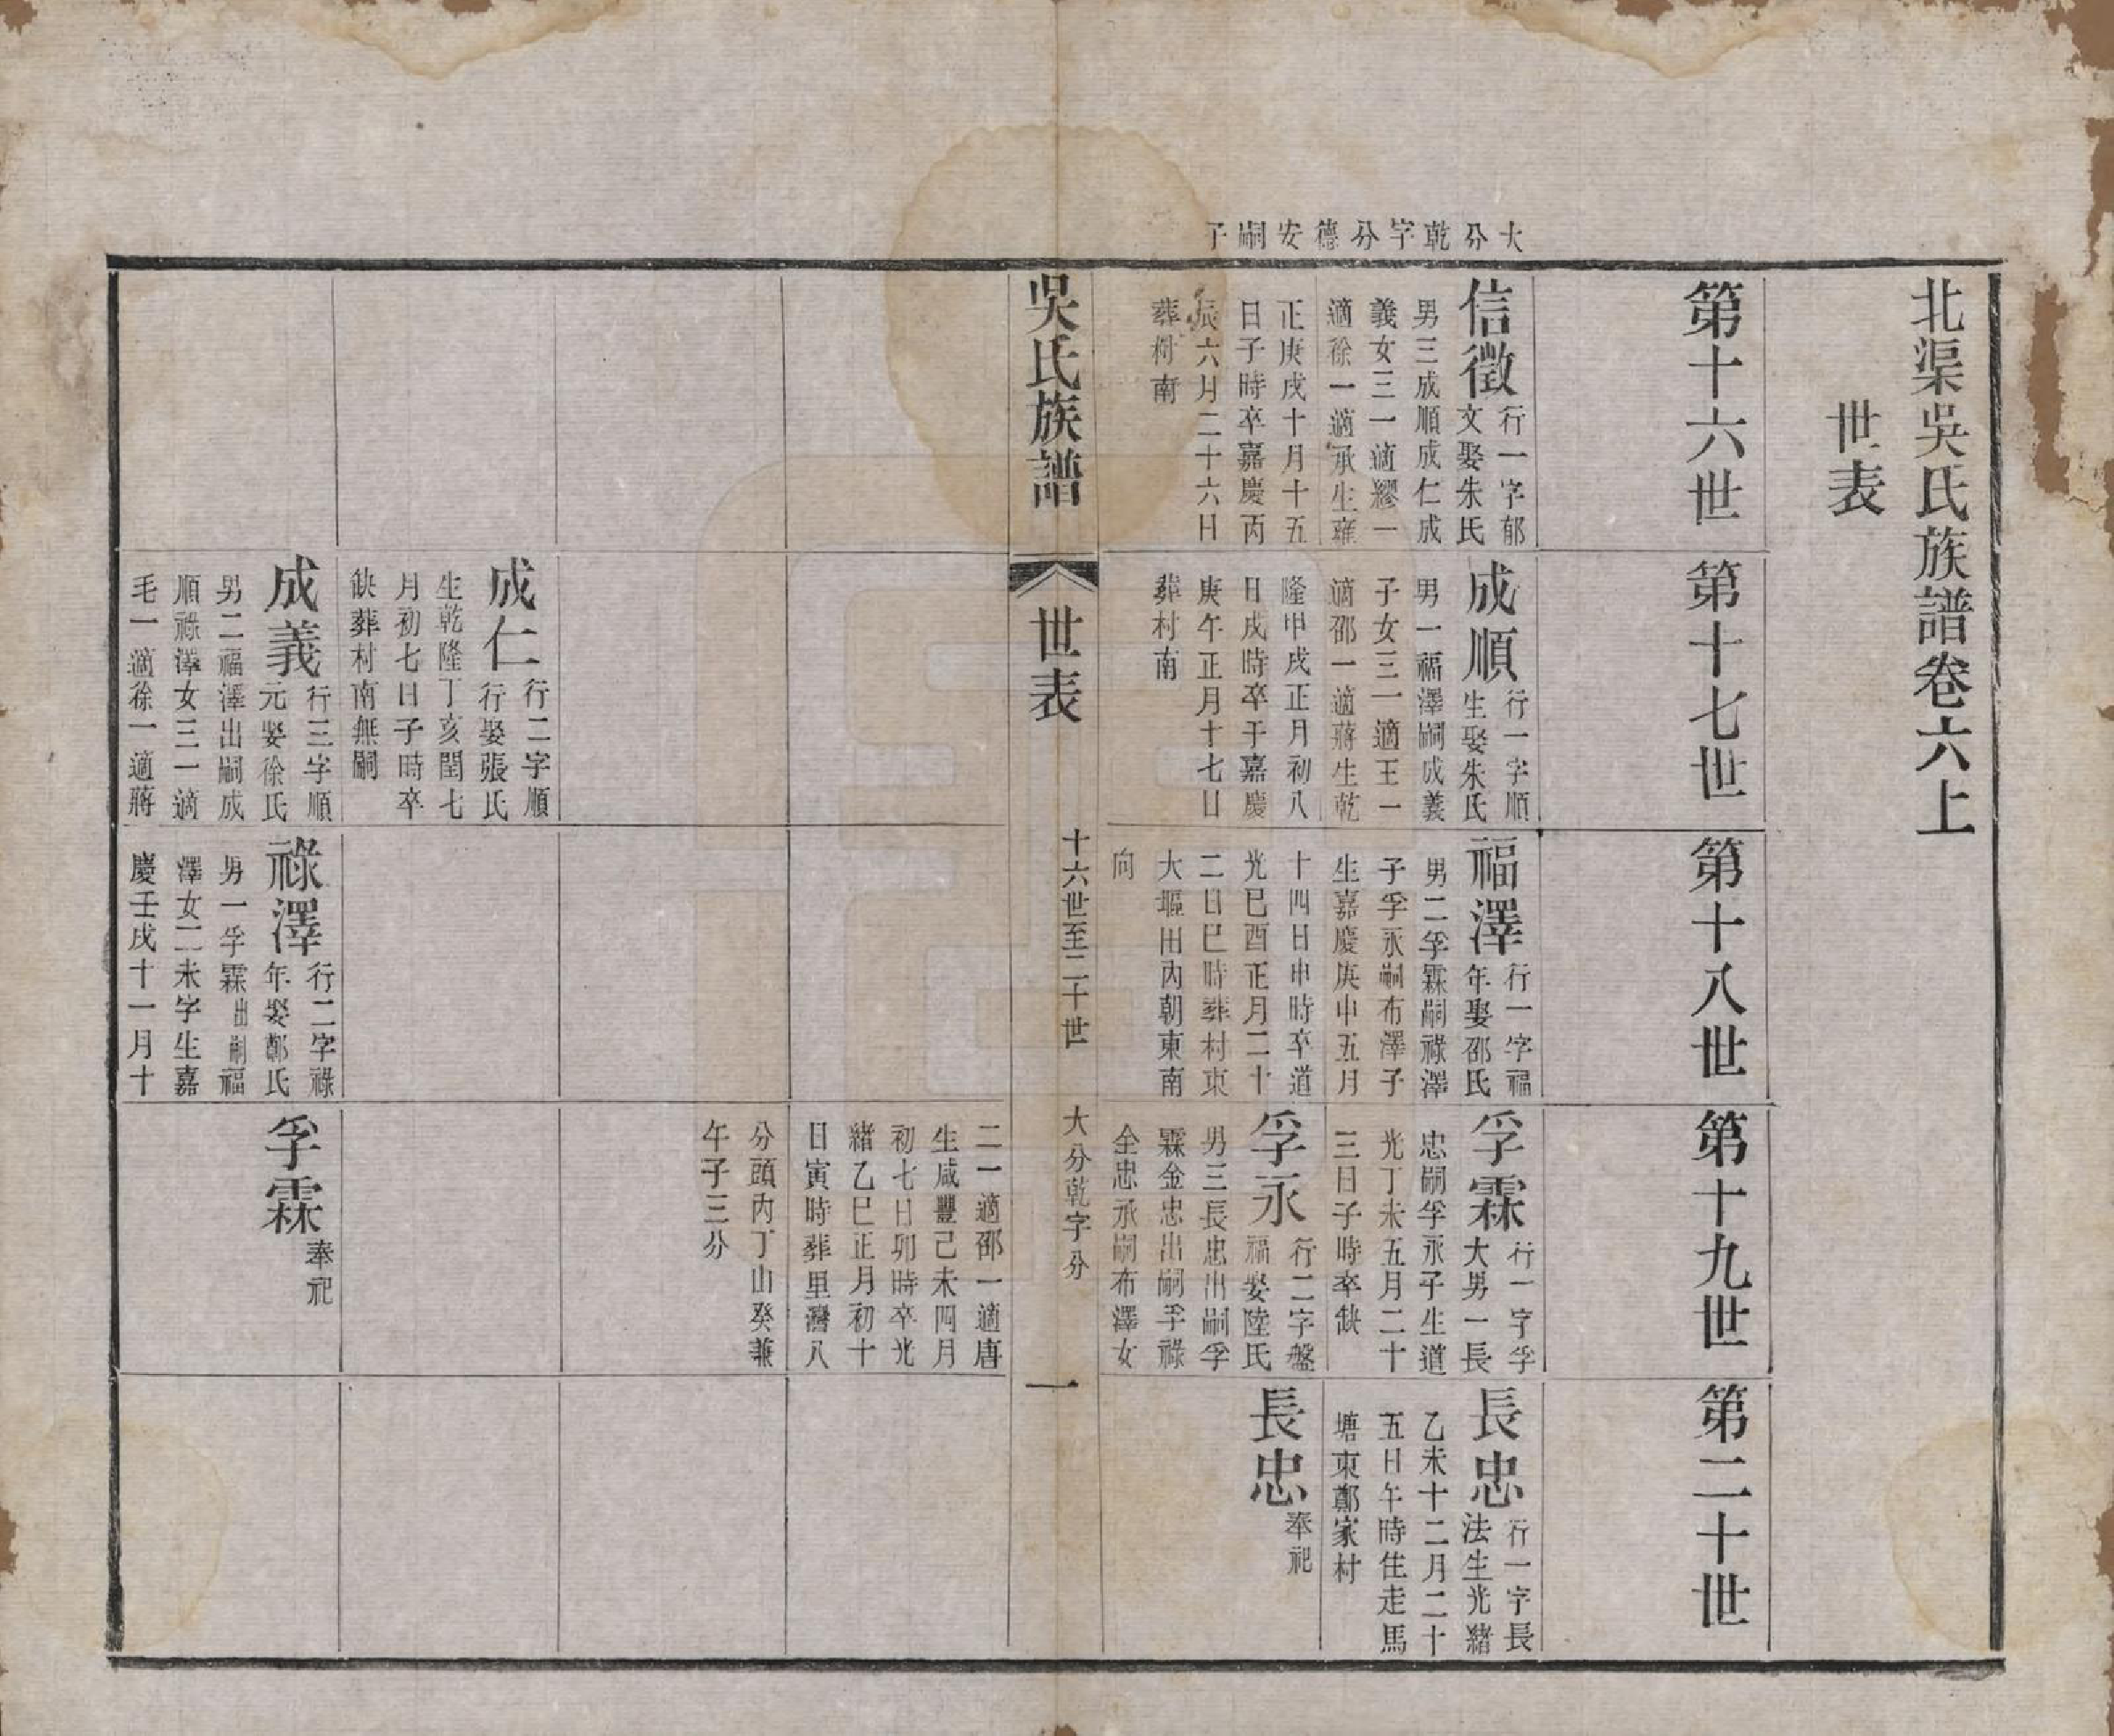 北渠吳氏族譜卷六上
世表
大分乾字分德安嗣子
第十六世
信徵
行一字郁
文娶朱氏
男三成順成仁成
義女三一適繆一
適徐一適承生雍
正庚戌十月十五
日子時卒嘉慶丙
辰六月二十六日
葬村南
第十七世
成順
行一字順
生娶朱氏
男一福澤嗣成義
子女三一適王一
適邵一適蔣生乾
隆甲戌正月初八
日戌時卒于嘉慶
庚午正月十七日
葬村南
第十八世
福澤
行一字福
年娶邵氏
男二孚霖嗣祿澤
子孚永嗣布澤子
生嘉慶庚申五月
十四日申時卒道
光巳酉正月二十
二日巳時葬村東
大堰田內朝東南
向
第十九世
孚霖
行一字孚
大男一長
忠嗣孚永子生道
光丁未五月二十
三日子時卒缺
孚永
行二字盤
福娶陸氏
男三長忠出嗣孚
霖金忠出嗣孚祿
全忠承嗣布澤女
第二十世
長忠
行一字長
法生光緒
乙未十二月二十
五日午時住走馬
塘東鄭家村
長忠
奉祀
吳氏族譜
世表
十六世至二十世
大分乾字分
一
二一適邵一適唐
生咸豐己未四月
初七日卯時卒光
緒乙巳正月初十
日寅時葬里灣八
分頭內丁山癸兼
午子三分
成仁
行二字順
行娶張氏
生乾隆丁亥閏七
月初七日子時卒
缺葬村南無嗣
成義
行三字順
元娶徐氏
男二福澤出嗣成
順祿澤女三一適
毛一適徐一適蔣
祿澤
行二字祿
年娶鄭氏
男一孚霖出嗣福
澤女二未字生嘉
慶壬戌十一月十
孚霖
奉祀